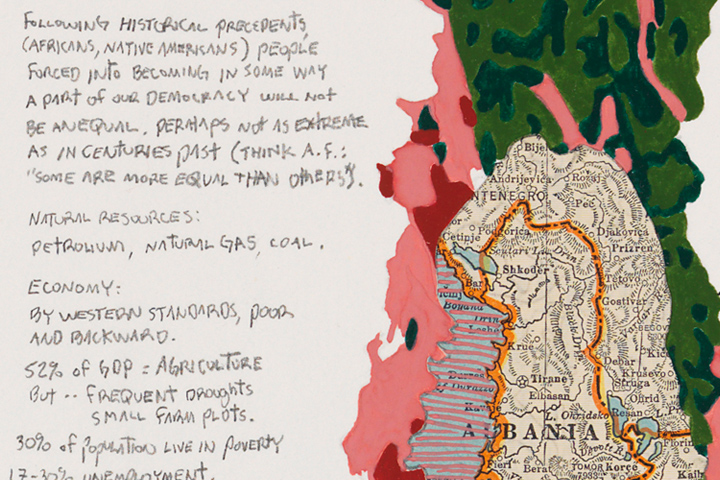 FOLLOWING HISTORICAL PRECEDENTS
(AFRICANS, NATIVE AMERICANS) PEOPLE
FORCED INTO BECOMING IN SOME WAY
A PART OF OUR DEMOCRACY WILL NOT
BE ANEQUAL. PERHAPS NOT AS EXTREME
AS IN CENTURIES PAST (THINK A.F.:
"SOME ARE MORE EQUAL THAN OTHERS").
NATURAL RESOURCES:
PETROLIUM, NATURAL GAS, COAL.
ECONOMY:
BY WESTERN STANDARDS, POOR
AND BACKWARD.
52% OF GDP = AGRICULTURE
BUT -- FREQUENT DROUGHTS
SMALL FARM PLOTS.
30% OF POPULATION LIVE IN POVERTY
17-30% UNEMPLOYMENT.
Bije
Andrijevica
Rozaj
NTENEGRO
Peć
Cetinje
Podgorica
Djakovica
Scutari L.
Prizren
Shkodër
Tetovo
Bar
Gostivar
Bojana
Drin
Black Drin
Lesh
Krue
Debar
Kičev
Tirane
Kruševo
Struga
Durres
Elbasan
Ohrid
Kavaje
L. Ohridsko
Resan
L. P
ALBANIA
Devole R.
Florin
Fieri
Berat
TOMOR
Korçe
7933
Kaila